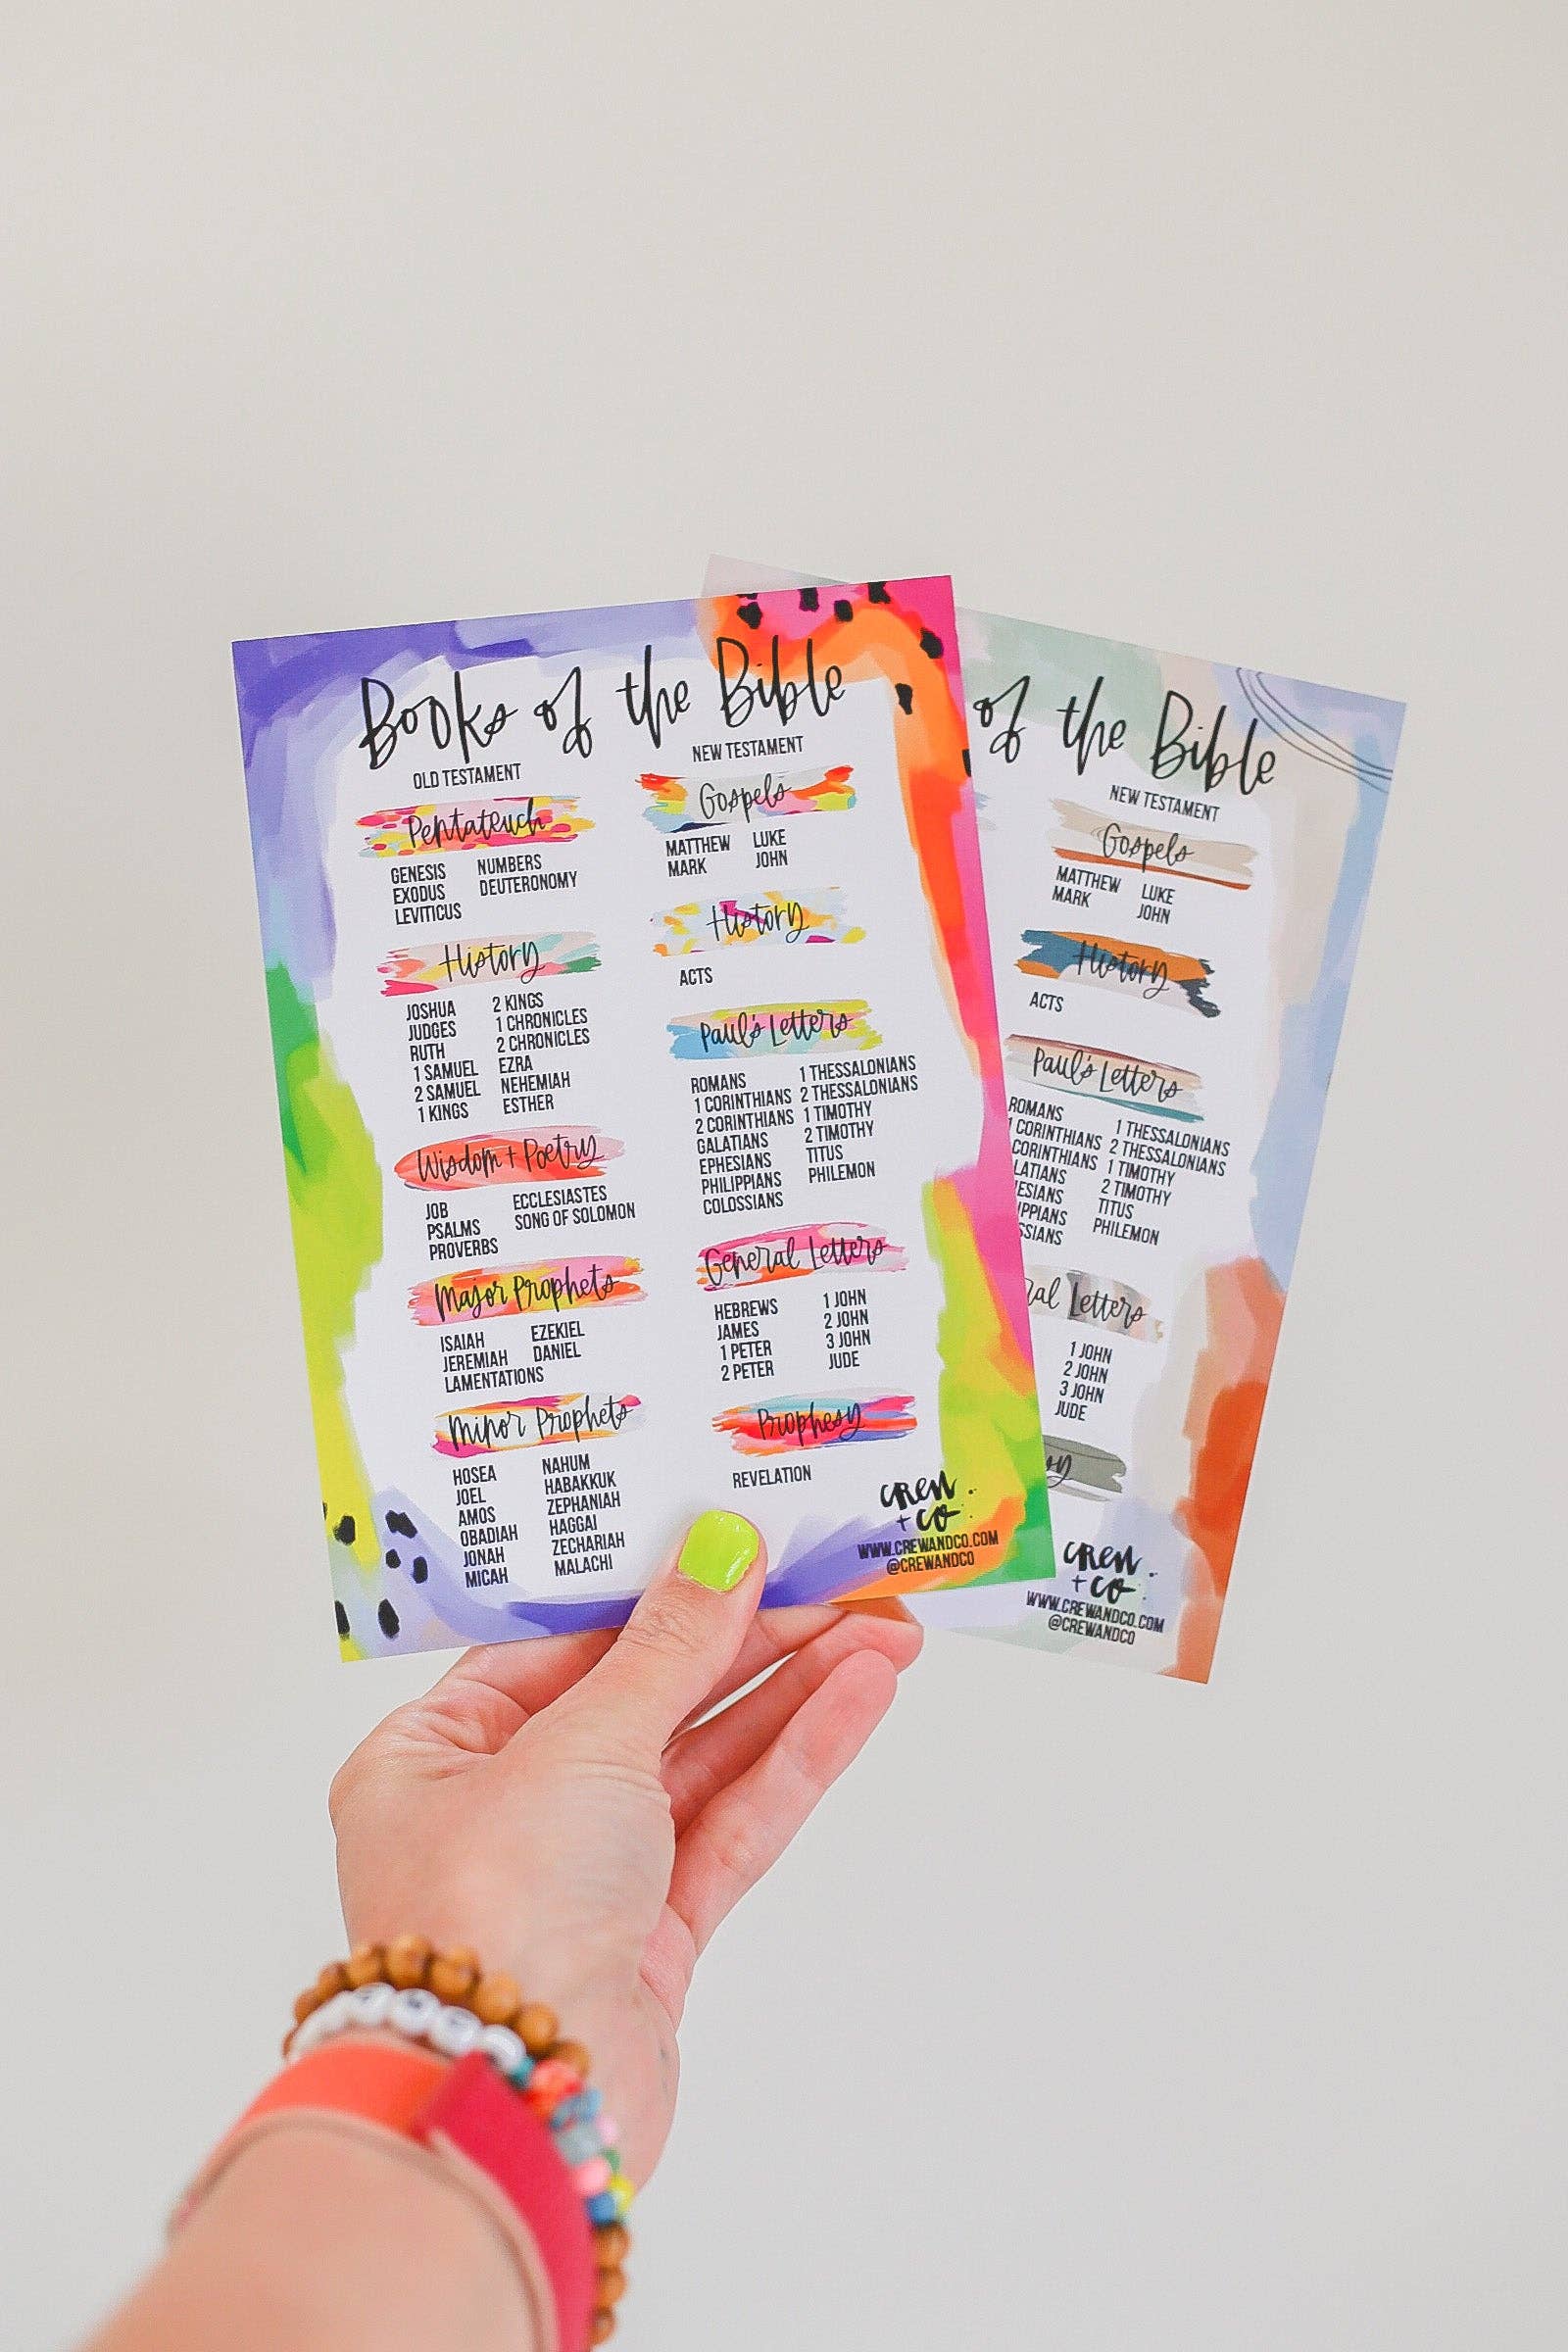 Books of the Bible
OLD TESTAMENT
Pentateuch
GENESIS NUMBERS
EXODUS DEUTERONOMY
LEVITICUS
History
JOSHUA 2 KINGS
JUDGES 1 CHRONICLES
RUTH 2 CHRONICLES
1 SAMUEL EZRA
2 SAMUEL NEHEMIAH
1 KINGS ESTHER
Wisdom + Poetry
JOB ECCLESIASTES
PSALMS SONG OF SOLOMON
PROVERBS
Major Prophets
ISAIAH EZEKIEL
JEREMIAH DANIEL
LAMENTATIONS
Minor Prophets
HOSEA NAHUM
JOEL HABAKKUK
AMOS ZEPHANIAH
OBADIAH HAGGAI
JONAH ZECHARIAH
MICAH MALACHI
NEW TESTAMENT
Gospels
MATTHEW LUKE
MARK JOHN
History
ACTS
Paul's Letters
ROMANS 1 THESSALONIANS
1 CORINTHIANS 2 THESSALONIANS
2 CORINTHIANS 1 TIMOTHY
GALATIANS 2 TIMOTHY
EPHESIANS TITUS
PHILIPPIANS PHILEMON
COLOSSIANS
General Letters
HEBREWS 1 JOHN
JAMES 2 JOHN
1 PETER 3 JOHN
2 PETER JUDE
Prophesy
REVELATION
CREW
+ CO.
WWW.CREWANDCO.COM
@CREWANDCO
of the Bible
NEW TESTAMENT
Gospels
MATTHEW LUKE
MARK JOHN
History
ACTS
Paul's Letters
ROMANS 1 THESSALONIANS
CORINTHIANS 2 THESSALONIANS
CORINTHIANS 1 TIMOTHY
LATIANS 2 TIMOTHY
ESIANS TITUS
IPPIANS PHILEMON
SSIANS
ral Letters
1 JOHN
2 JOHN
3 JOHN
JUDE
sy
CREW
+ CO.
WWW.CREWANDCO.COM
@CREWANDCO